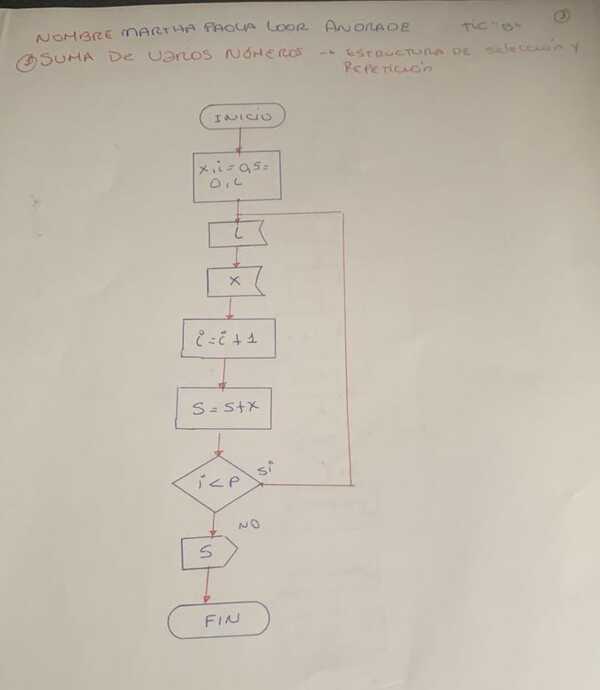 3
NOMBRE MARTHA PAOLA LOOR ANDRADE TIC "B"
3 SUMA DE VARIOS NÚMEROS → ESTRUCTURA DE SELECCIÓN Y
REPETICIÓN
INICIO
x, i = 0, S =
0, L
L
X
i = i + 1
S = S + X
i < P
Si
NO
S
FIN